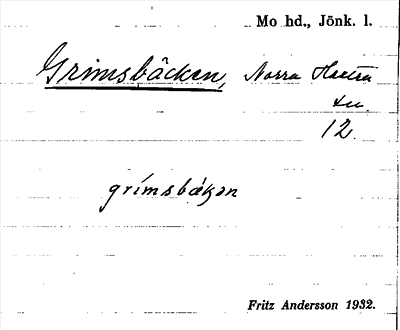 Mo hd., Jönk. l.
Grimsbäcken, Norra Hestra
sn.
12.
grímsbäkən
Fritz Andersson 1932.